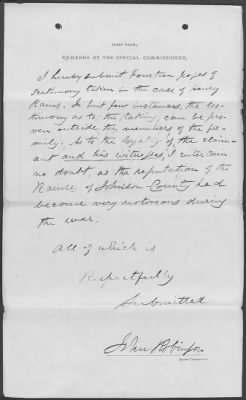 REMARKS BY THE SPECIAL COMMISSIONER.
I hereby submit Fourteen pages of
testimony taken in the case of Henry
Rains. In but few instances, the tes-
timony as to the taking, can be pro-
ven outside the members of the fa-
mily. As to the loyalty of the claim-
ant and his witnesses, I entertain
no doubt, as the reputation of the
Raines of Johnson County had
become very notorious during
the war.
All of which is
Respectfully
Submitted
John Robinson
Special Commissioner.